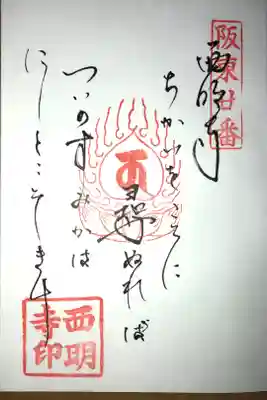 阪東廿番
西明寺
ちかひをここに
尋ぬれば
ついのすみかは
にしとこそきけ
西明
寺印